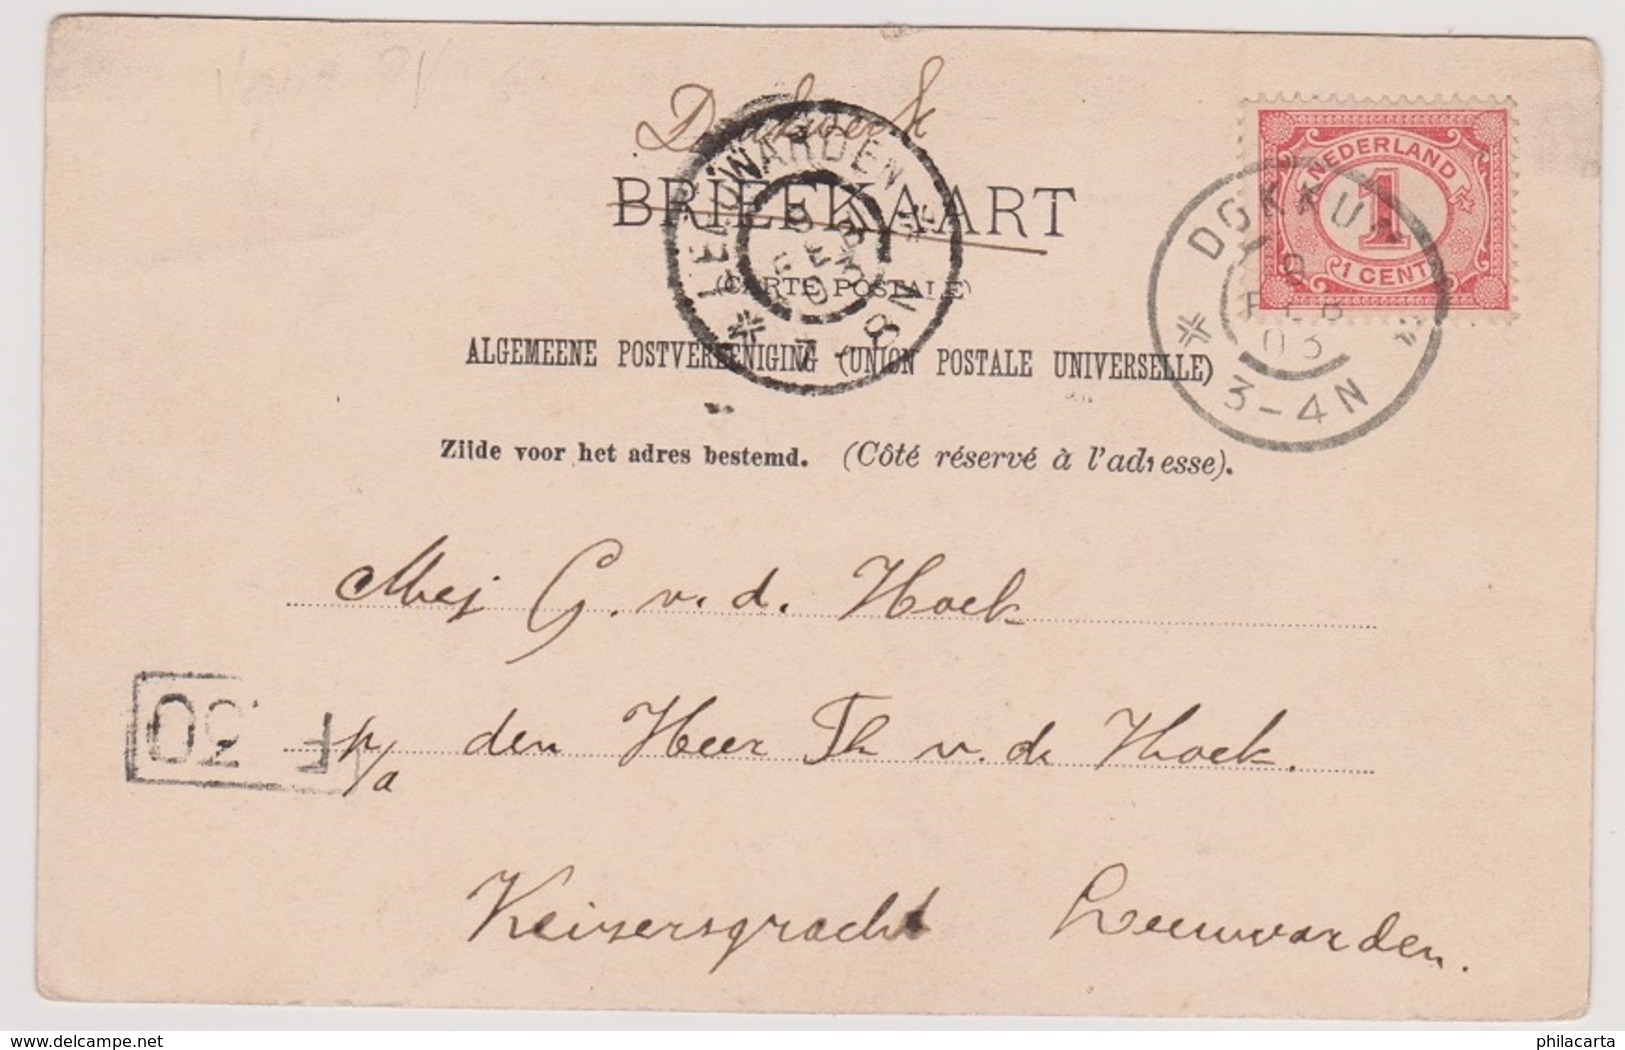 Drukwerk
BRIEFKAART
(CARTE POSTALE)
ALGEMEENE POSTVEREENIGING (UNION POSTALE UNIVERSELLE)
Zijde voor het adres bestemd. (Côté réservé à l'adresse).
NEDERLAND
1
1 CENT
DOKKUM
9
FEB
03
3-4N
LEEUWARDEN
9
FEB
03
7-8N
Mej G. v. d. Hoek
p/a den Heer Th v. d. Hoek.
Keizersgracht Leeuwarden.
F .50
delcampe.net
philacarta